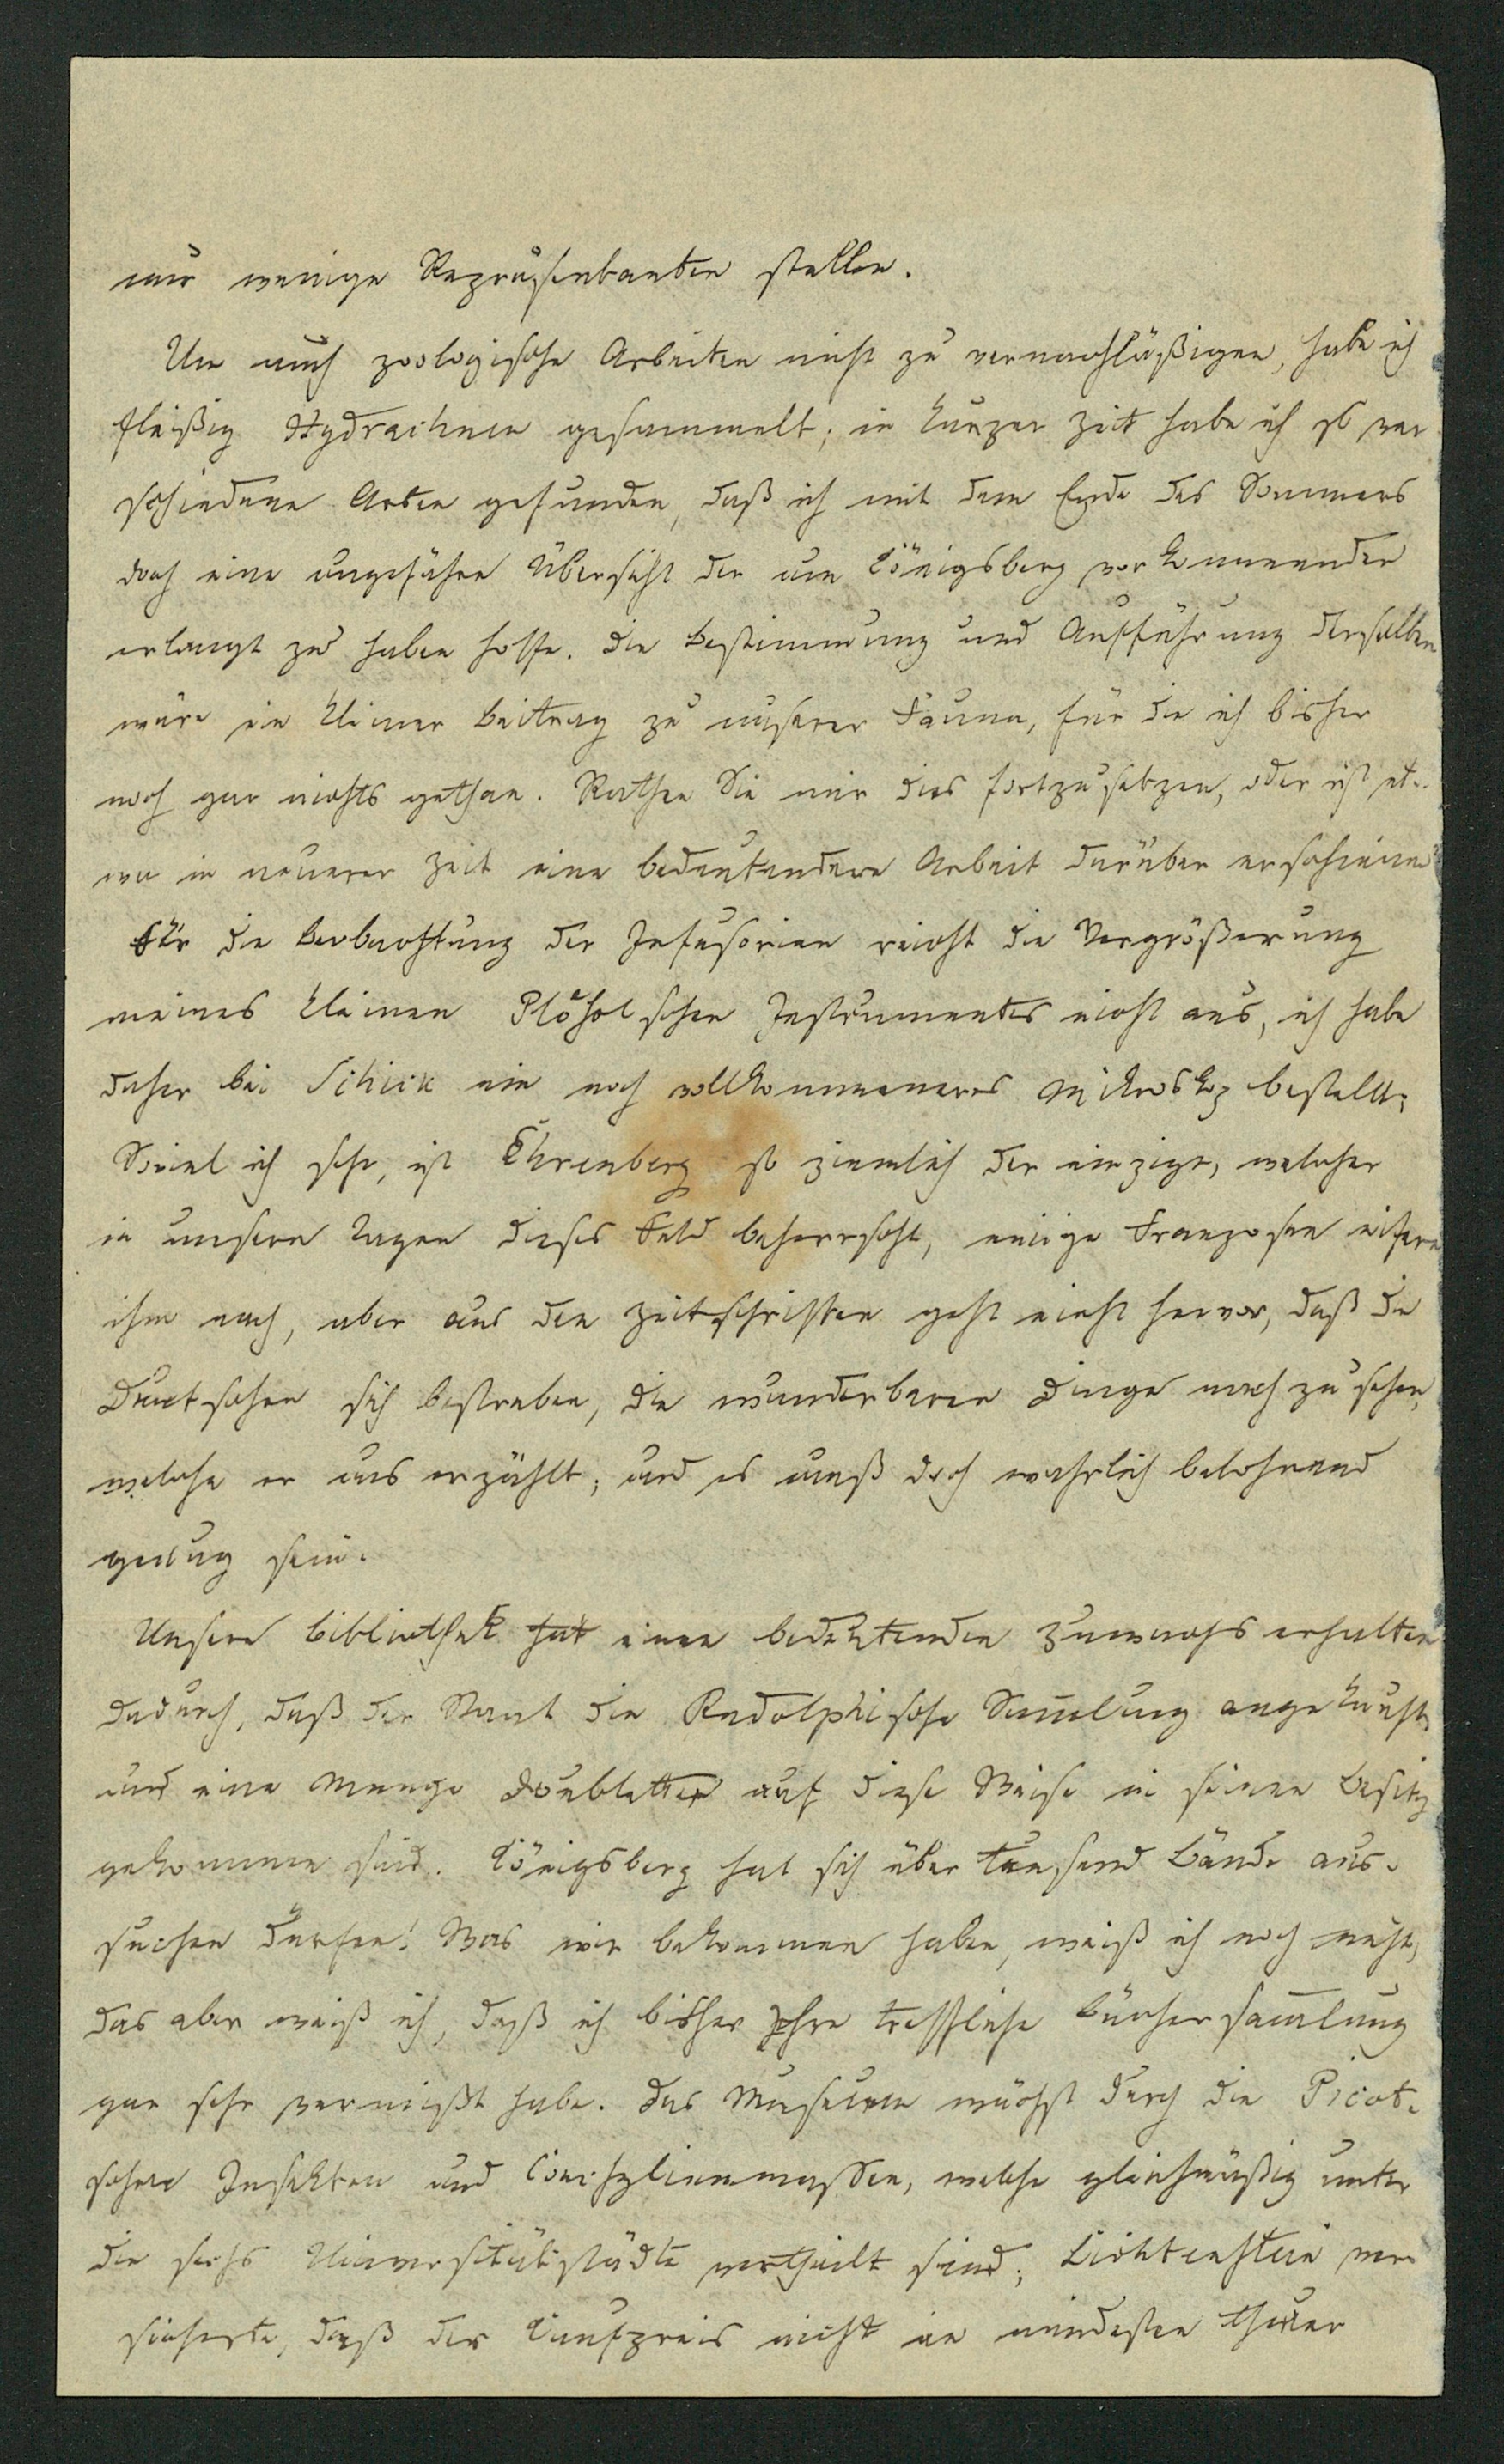 nur wenige Repräsentanten stellen.
Um auch zoologische Arbeiten nicht zu vernachläßigen, habe ich
fleißig Hydrachnen gesammelt; in kurzer Zeit habe ich 16 ver
schiedene Arten gefunden, daß ich mit dem Ende des Sommers
doch eine ungefähre Übersicht der um Königsberg vorkommenden
erlangt zu haben hoffe. Die Bestimmung und Aufführung derselben
wäre ein kleiner Beitrag zu unserer Fauna, für die ich bisher
noch gar nichts gethan. Rathen Sie mir dies fortzusetzen, oder ist et-
wa in neuerer Zeit eine bedeutendere Arbeit darüber erschienen?
Für die Beobachtung der Infusorien reicht die Vergrößerung
meines kleinen Plößelschen Instrumentes nicht aus, ich habe
daher bei Schiek ein noch vollkommeneres Mikroskop bestellt;
Soviel ich sehe, ist Ehrenberg so ziemlich der einzige, welcher
in unseren Tagen dieses Feld beherrscht, einige Franzosen eifern
ihm nach, aber aus den Zeitschriften geht nicht hervor, daß die
Deutschen sich bestreben, die wunderbaren Dinge nachzusehen,
welche er uns erzählt; und es muß doch wahrlich belohnend
genug sein.
Unsere Bibliothek hat einen bedeutenden Zuwachs erhalten
dadurch, daß der Staat die Rudolphische Samlung angekauft,
und eine Menge Doubletten auf diese Weise in seinen Besitz
gekommen sind. Königsberg hat sich über tausend Bände aus-
suchen dürfen! Was wir bekommen haben, weiß ich noch nicht,
das aber weiß ich, daß ich bisher Ihre treffliche Büchersamlung
gar sehr vermißt habe. Das Museum wächst durch die Picot-
schen Insekten und Conchylienmassen, welche gleichmäßig unter
die sechs Universitätsstädte vertheilt sind; Lichtenstein ver
sicherte, daß der Kaufpreis nicht im mindesten theuer